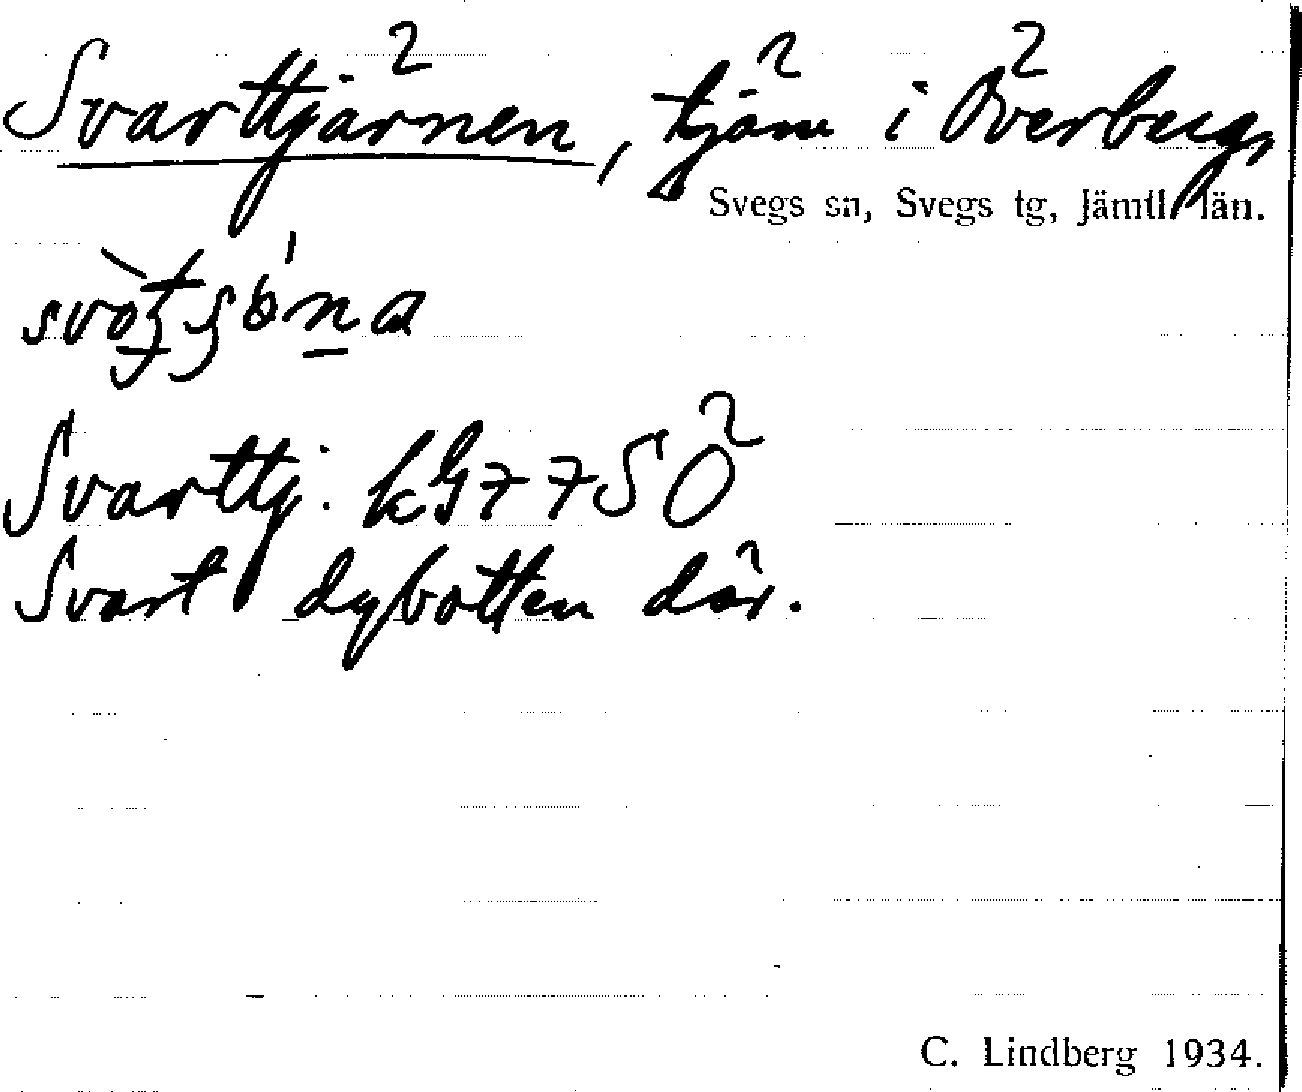 Svarttjärnen, tjärn i Överberg,
Svegs sn, Svegs tg, Jämtl. län.
Svarttj. kG77SÖ
Svart dybotten där.
C. Lindberg 1934.